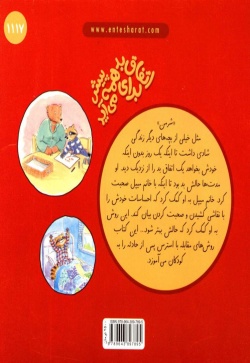 www.entesharat.com
۱۱۱۷
اتفاق بد
برای همه
پیش می‌آید
«شرمن»
مثل خیلی از بچه‌های دیگر زندگی
شادی داشت تا اینکه یک روز بدون اینکه
خودش بخواهد یک اتفاق بد را از نزدیک دید. او
مدت‌ها حالش بد بود تا اینکه با خانم میپل صحبت
کرد. خانم میپل به او کمک کرد که احساسات خودش را
با نقاشی کشیدن و صحبت کردن بیان کند. این روش
به او کمک کرد که حالش بهتر شود. این کتاب
روش‌های مقابله با استرس پس از حادثه را به
کودکان می‌آموزد.